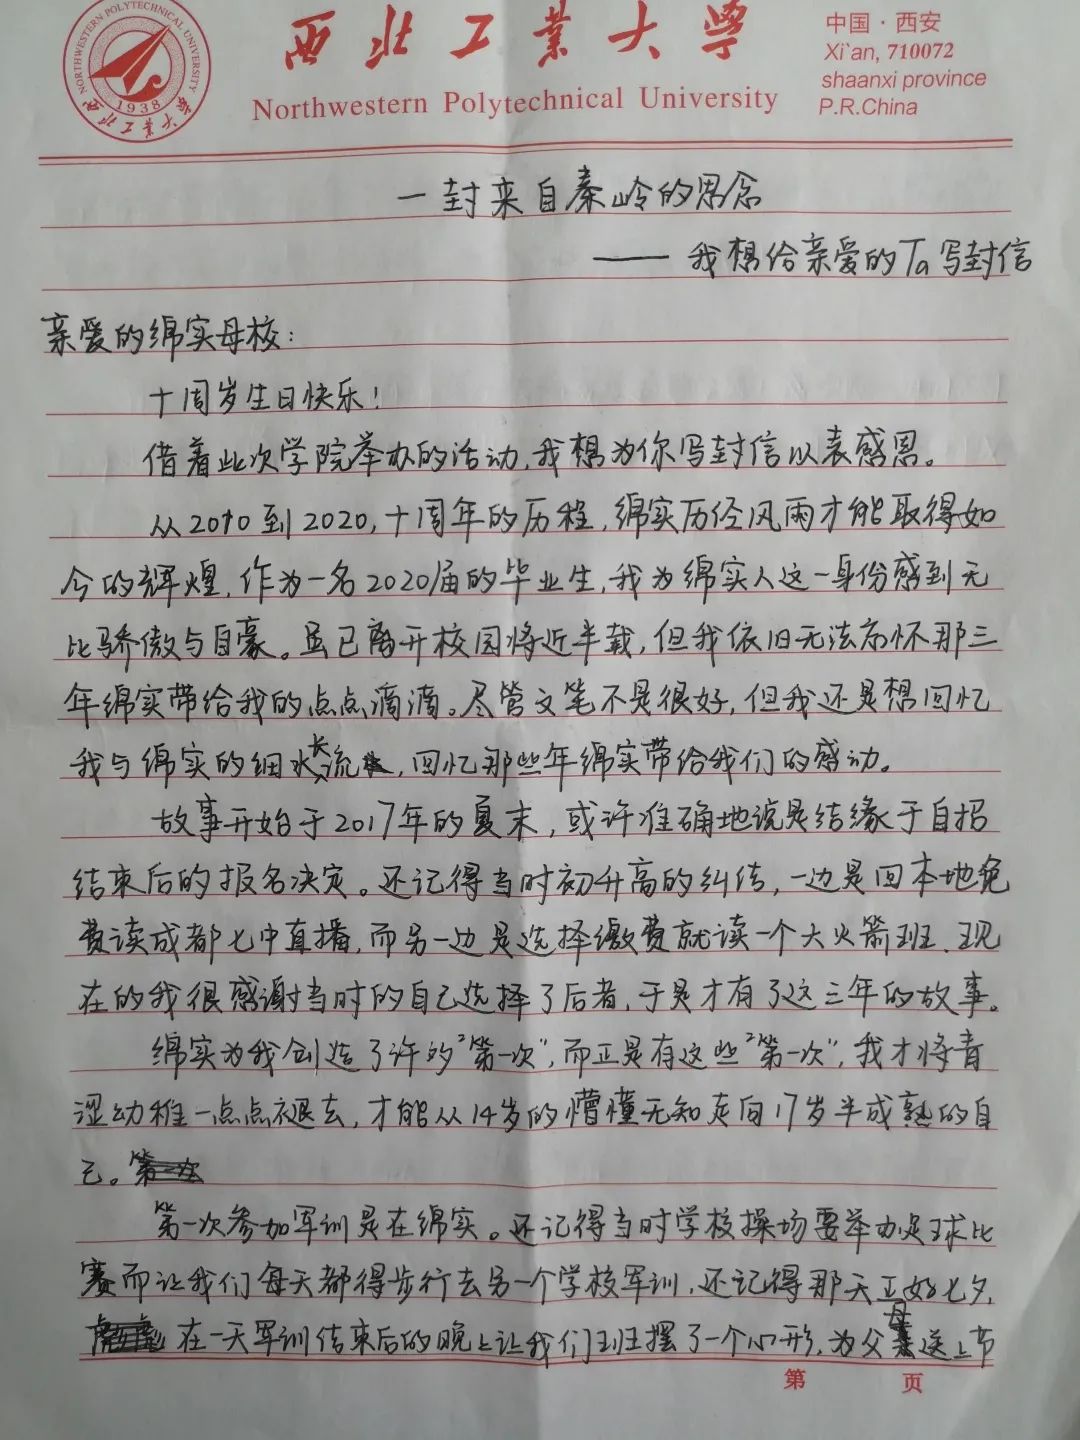 NORTHWESTERN POLYTECHNICAL UNIVERSITY
1938
西北工业大学
西北工业大学
Northwestern Polytechnical University
中国·西安
Xi`an, 710072
shaanxi province
P.R.China
一封来自秦岭的思念
——我想给亲爱的Ta写封信
亲爱的绵实母校：
十周岁生日快乐！
借着此次学院举办的活动，我想为你写封信以表感恩。
从2010到2020，十周年的历程，绵实历经风雨才能取得如
今的辉煌，作为一名2020届的毕业生，我为绵实人这一身份感到无
比骄傲与自豪。虽已离开校园将近半载，但我依旧无法忘怀那三
年绵实带给我的点点滴滴。尽管文笔不是很好，但我还是想回忆
我与绵实的细水长流，回忆那些年绵实带给我们的感动。
故事开始于2017年的夏末，或许准确地说是结缘于自招
结束后的报名决定。还记得当时初升高的纠结，一边是回本地免
费读成都七中直播，而另一边是选择缴费就读一个大火箭班，现
在的我很感谢当时的自己选择了后者，于是才有了这三年的故事。
绵实为我创造了许的“第一次”，而正是有这些“第一次”，我才将青
涩幼稚一点点褪去，才能从14岁的懵懂无知走向17岁半成熟的自
己。
第一次参加军训是在绵实。还记得当时学校操场要举办足球比
赛而让我们每天都得步行去另一个学校军训，还记得那天正好七夕，
在一天军训结束后的晚上让我们班摆了一个心形，为父母送上节
第 页